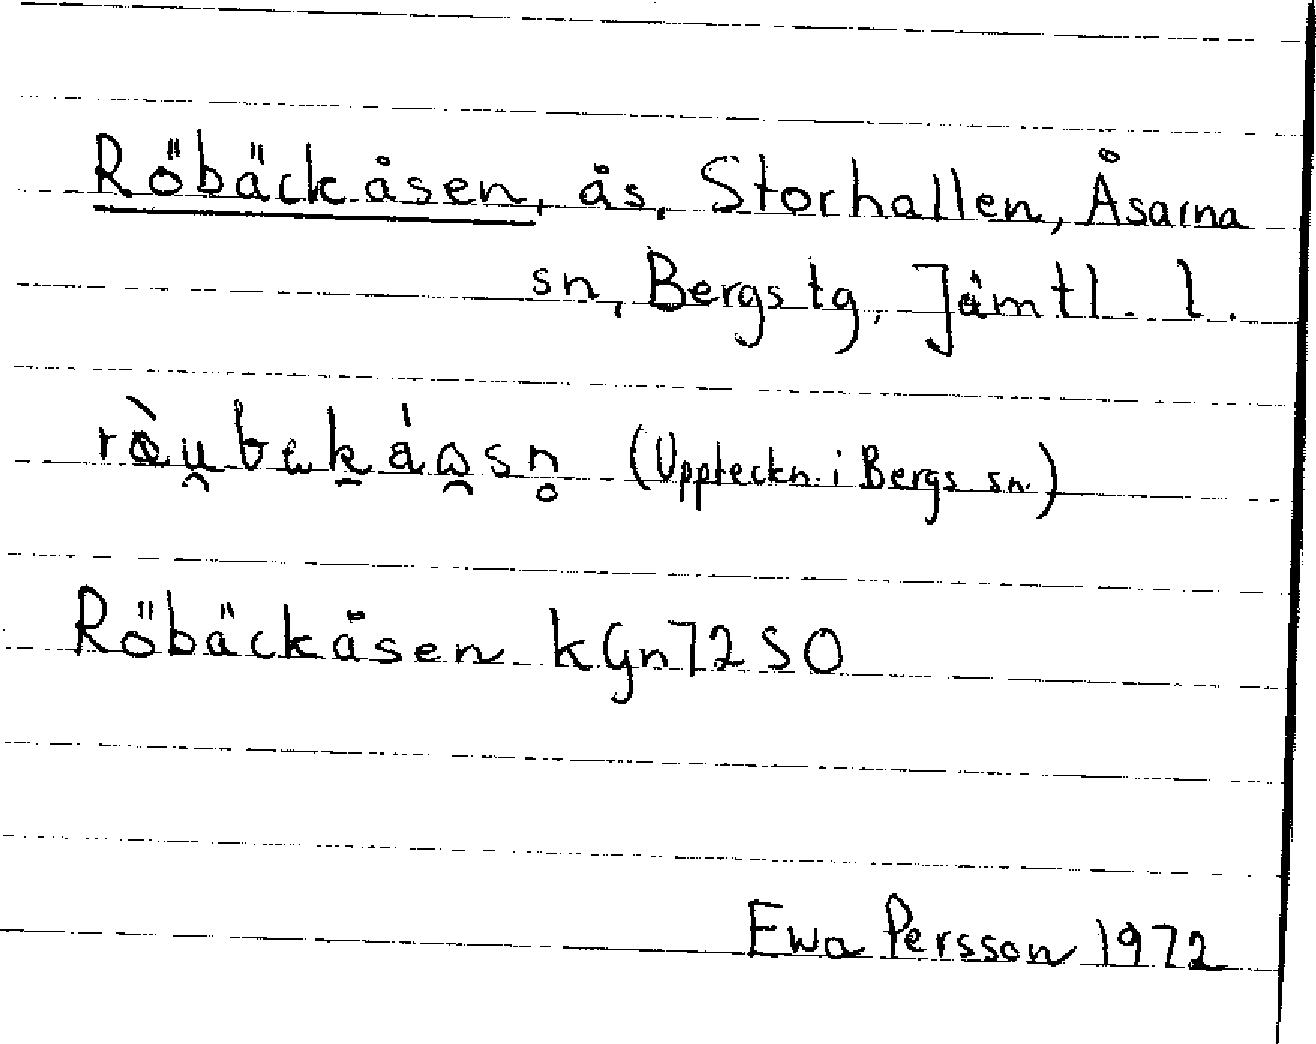 Röbäckåsen, ås, Storhallen, Åsarna
sn, Bergs tg, Jämtl. l.
(Uppteckn. i Bergs sn.)
Röbäckåsen kGn72SO
Ewa Persson 1972